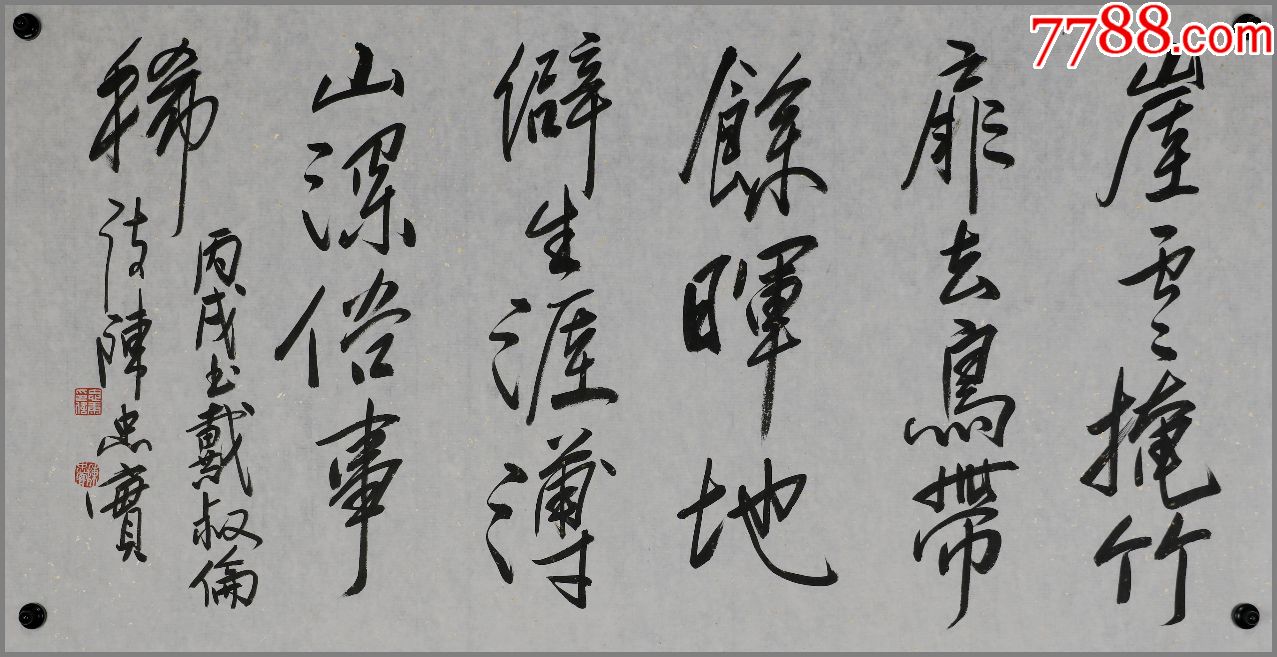 崖雲掩竹
扉去鳥帶
餘暉地
僻生涯薄
山深俗事
稀
丙戌书戴叔倫
诗陳忠實
7788.com